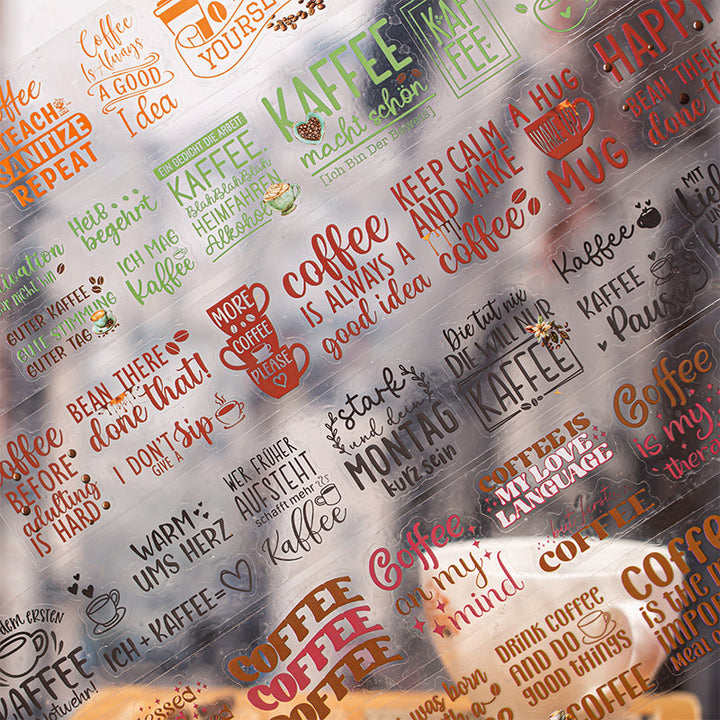 YOURSELF
Coffee
Is Always
A GOOD
Idea
Coffee
TEACH
SANITIZE
REPEAT
KAFFEE
macht schön
[Ich Bin Der Beweis]
KAF
FEE
EIN GEDICHT DIE ARBEIT:
KAFFEE.
BlahBlahBlah
HEIMFAHREN
Alkohol
Heiß
begehrt
ICH MAG
Kaffee
GUTER KAFFEE
GUTE STIMMUNG
GUTER TAG
HAPPY
BEAN THERE
done that
A HUG
IN A
MUG
KEEP CALM
AND MAKE
coffee
coffee
IS ALWAYS A
good idea
MORE
COFFEE
PLEASE
BEAN THERE
done that!
I DON'T
GIVE A
Sip
Coffee
BEFORE
adulting
IS HARD
MIT
Kaffee
KAFFEE
Pause
Die tut nix
DIE WILL NUR
KAFFEE
stark
und dein
MONTAG
kurz sein
WER FRÜHER
AUFSTEHT
schafft mehr
Kaffee
WARM
UMS HERZ
ICH + KAFFEE =
KAFFEE
Coffee
is my
COFFEE IS
MY LOVE
LANGUAGE
but first
COFFEE
Coffee
on my
mind
COFFEE
COFFEE
COFFEE
COFFEE
IS THE
DRINK COFFEE
AND DO
GOOD THINGS
was born
COFFEE